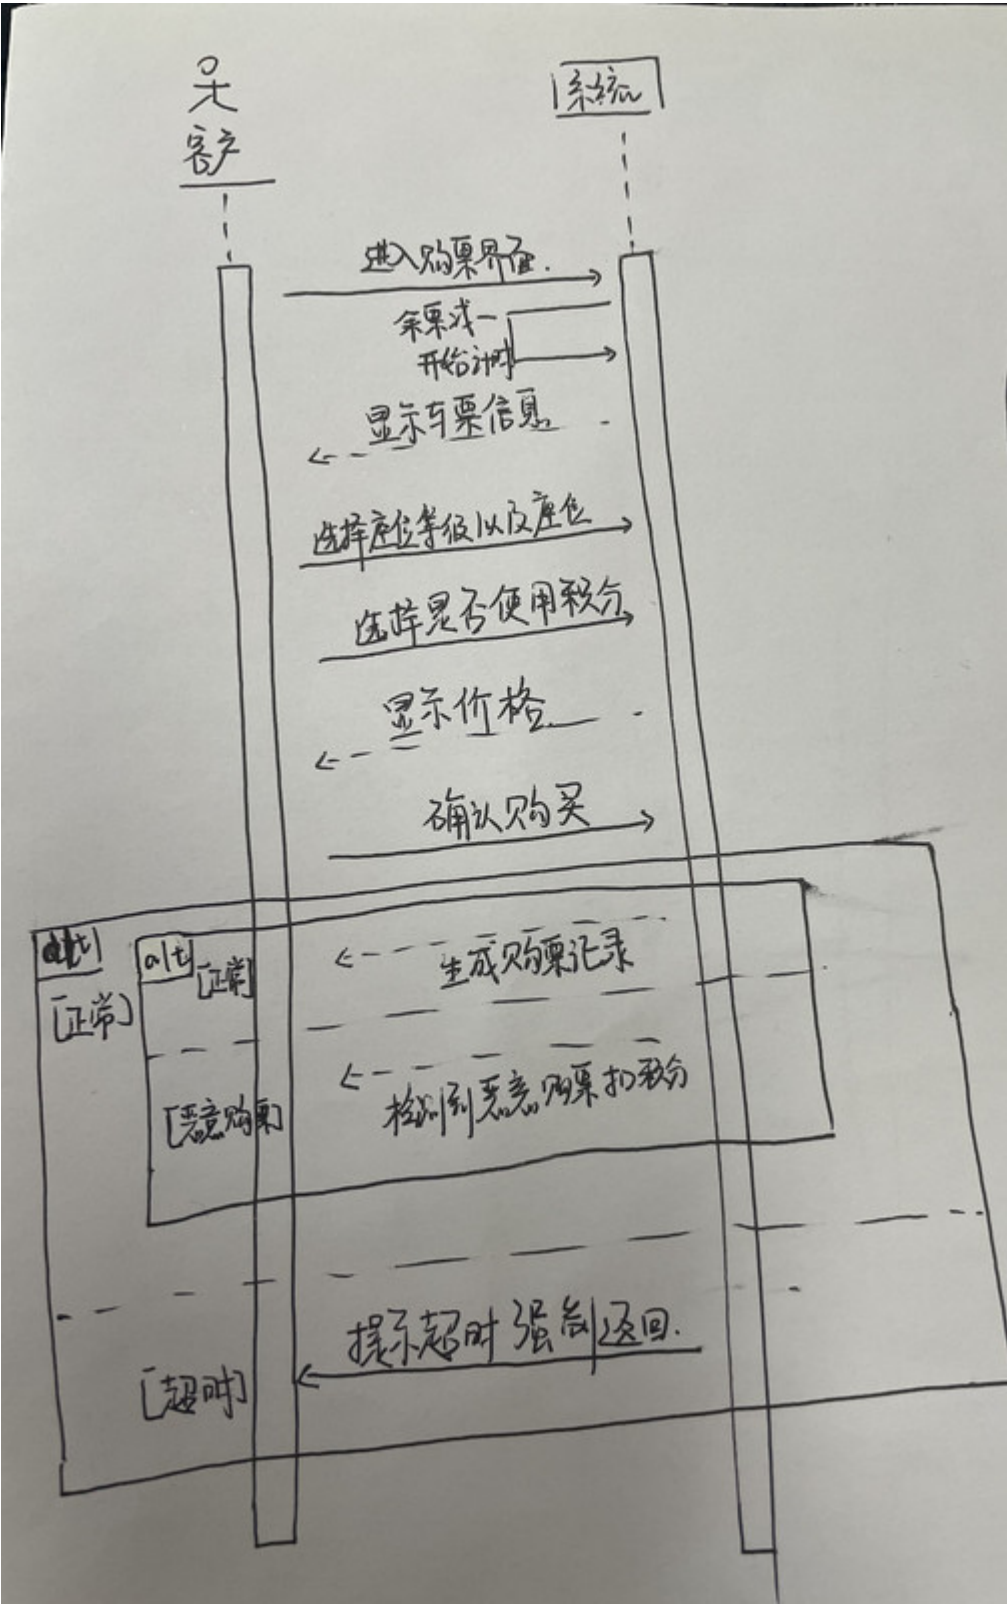 客户
系统
进入购票界面.
余票减一
开始计时
显示车票信息
选择座位等级以及座位
选择是否使用积分
显示价格
确认购买
alt
alt
[正常]
[正常]
生成购票记录
[恶意购票]
检测到恶意购票扣积分
提示超时 强制返回.
[超时]